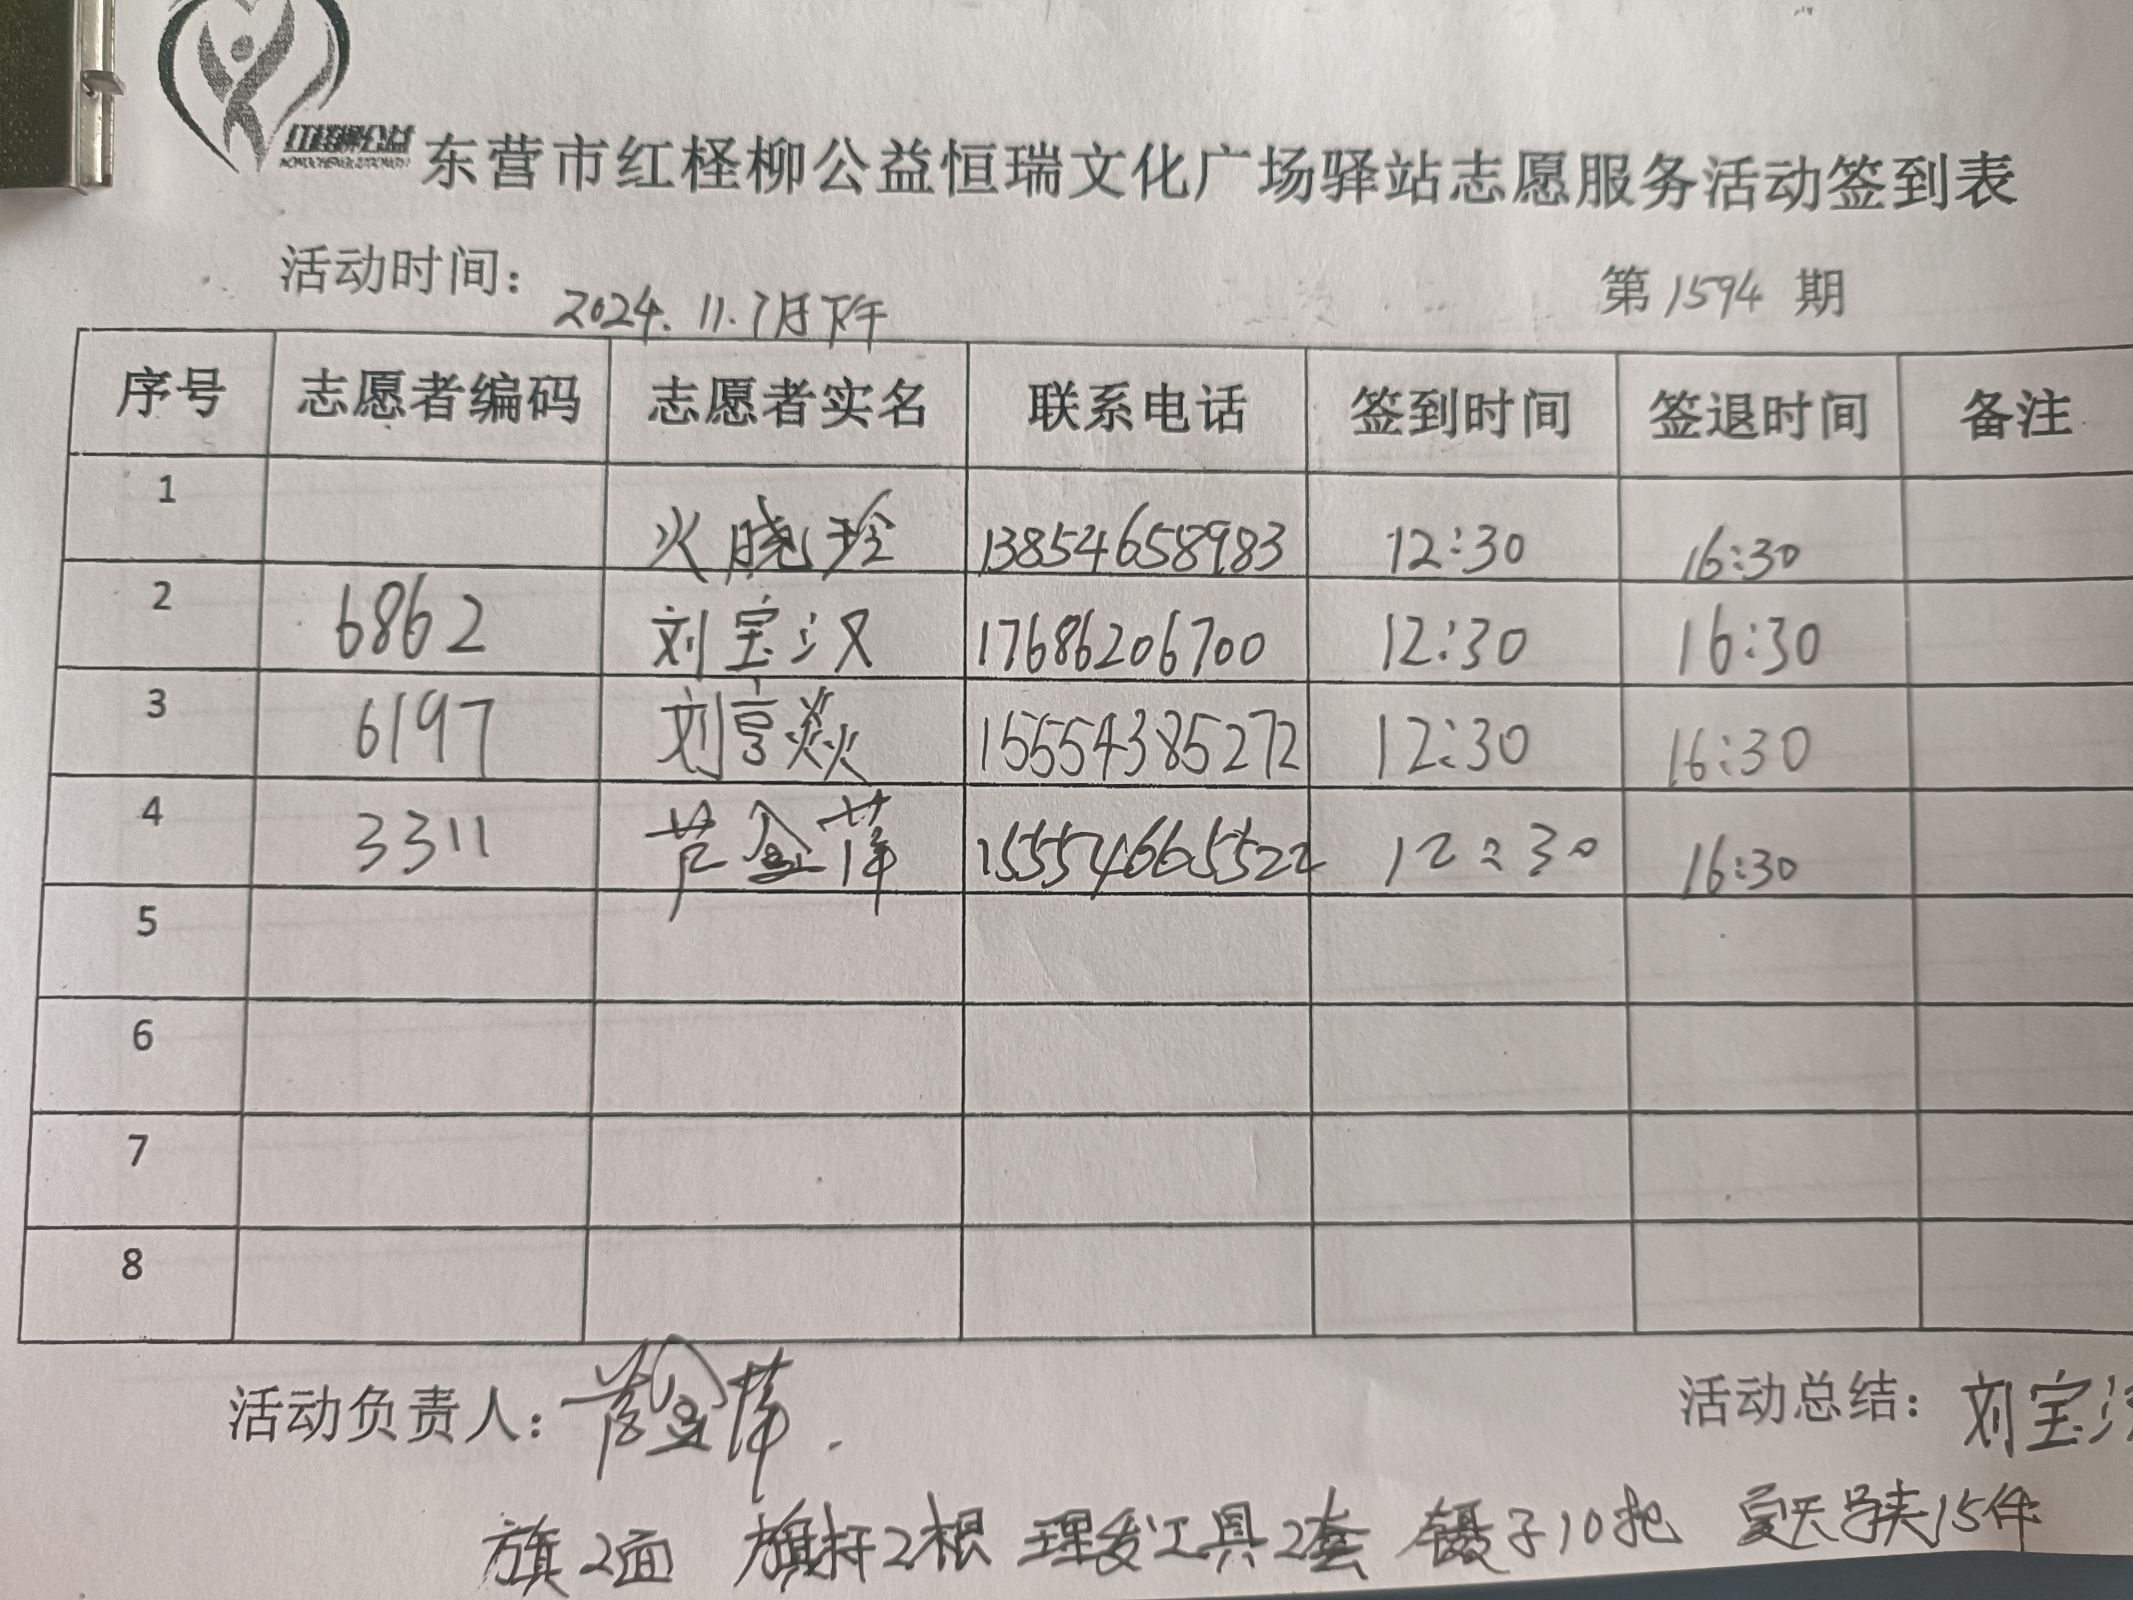 红柽柳公益
东营市红柽柳公益恒瑞文化广场驿站志愿服务活动签到表
活动时间: 2024.11.7日下午 第1594期
序号 志愿者编码 志愿者实名 联系电话 签到时间 签退时间 备注
1 火晓玲 13854658983 12:30 16:30
2 6862 刘宝汉 17686206700 12:30 16:30
3 6197 刘享焱 15554385272 12:30 16:30
4 3311 芦金萍 15554665522 12:30 16:30
5
6
7
8
活动负责人: 芦金萍. 活动总结: 刘宝汉
旗2面 旗杆2根 理发工具2套 镊子10把 夏天马夹15件